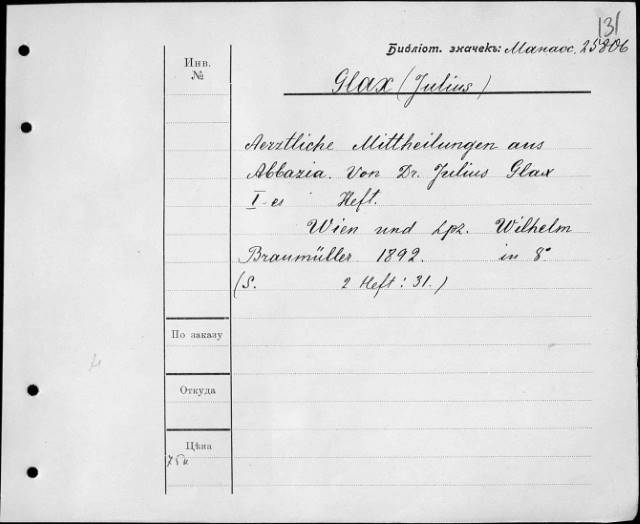 131
Библіот. значекъ: Манаос. 25806
Инв.
№
Glax (Julius)
Aerztliche Mittheilungen aus
Abbazia. Von Dr. Julius Glax
I-es Heft.
Wien und Lpz. Wilhelm
Braumüller 1892. in 8°
(S. 2 Heft: 31.)
По заказу
Откуда
Цѣна
75к